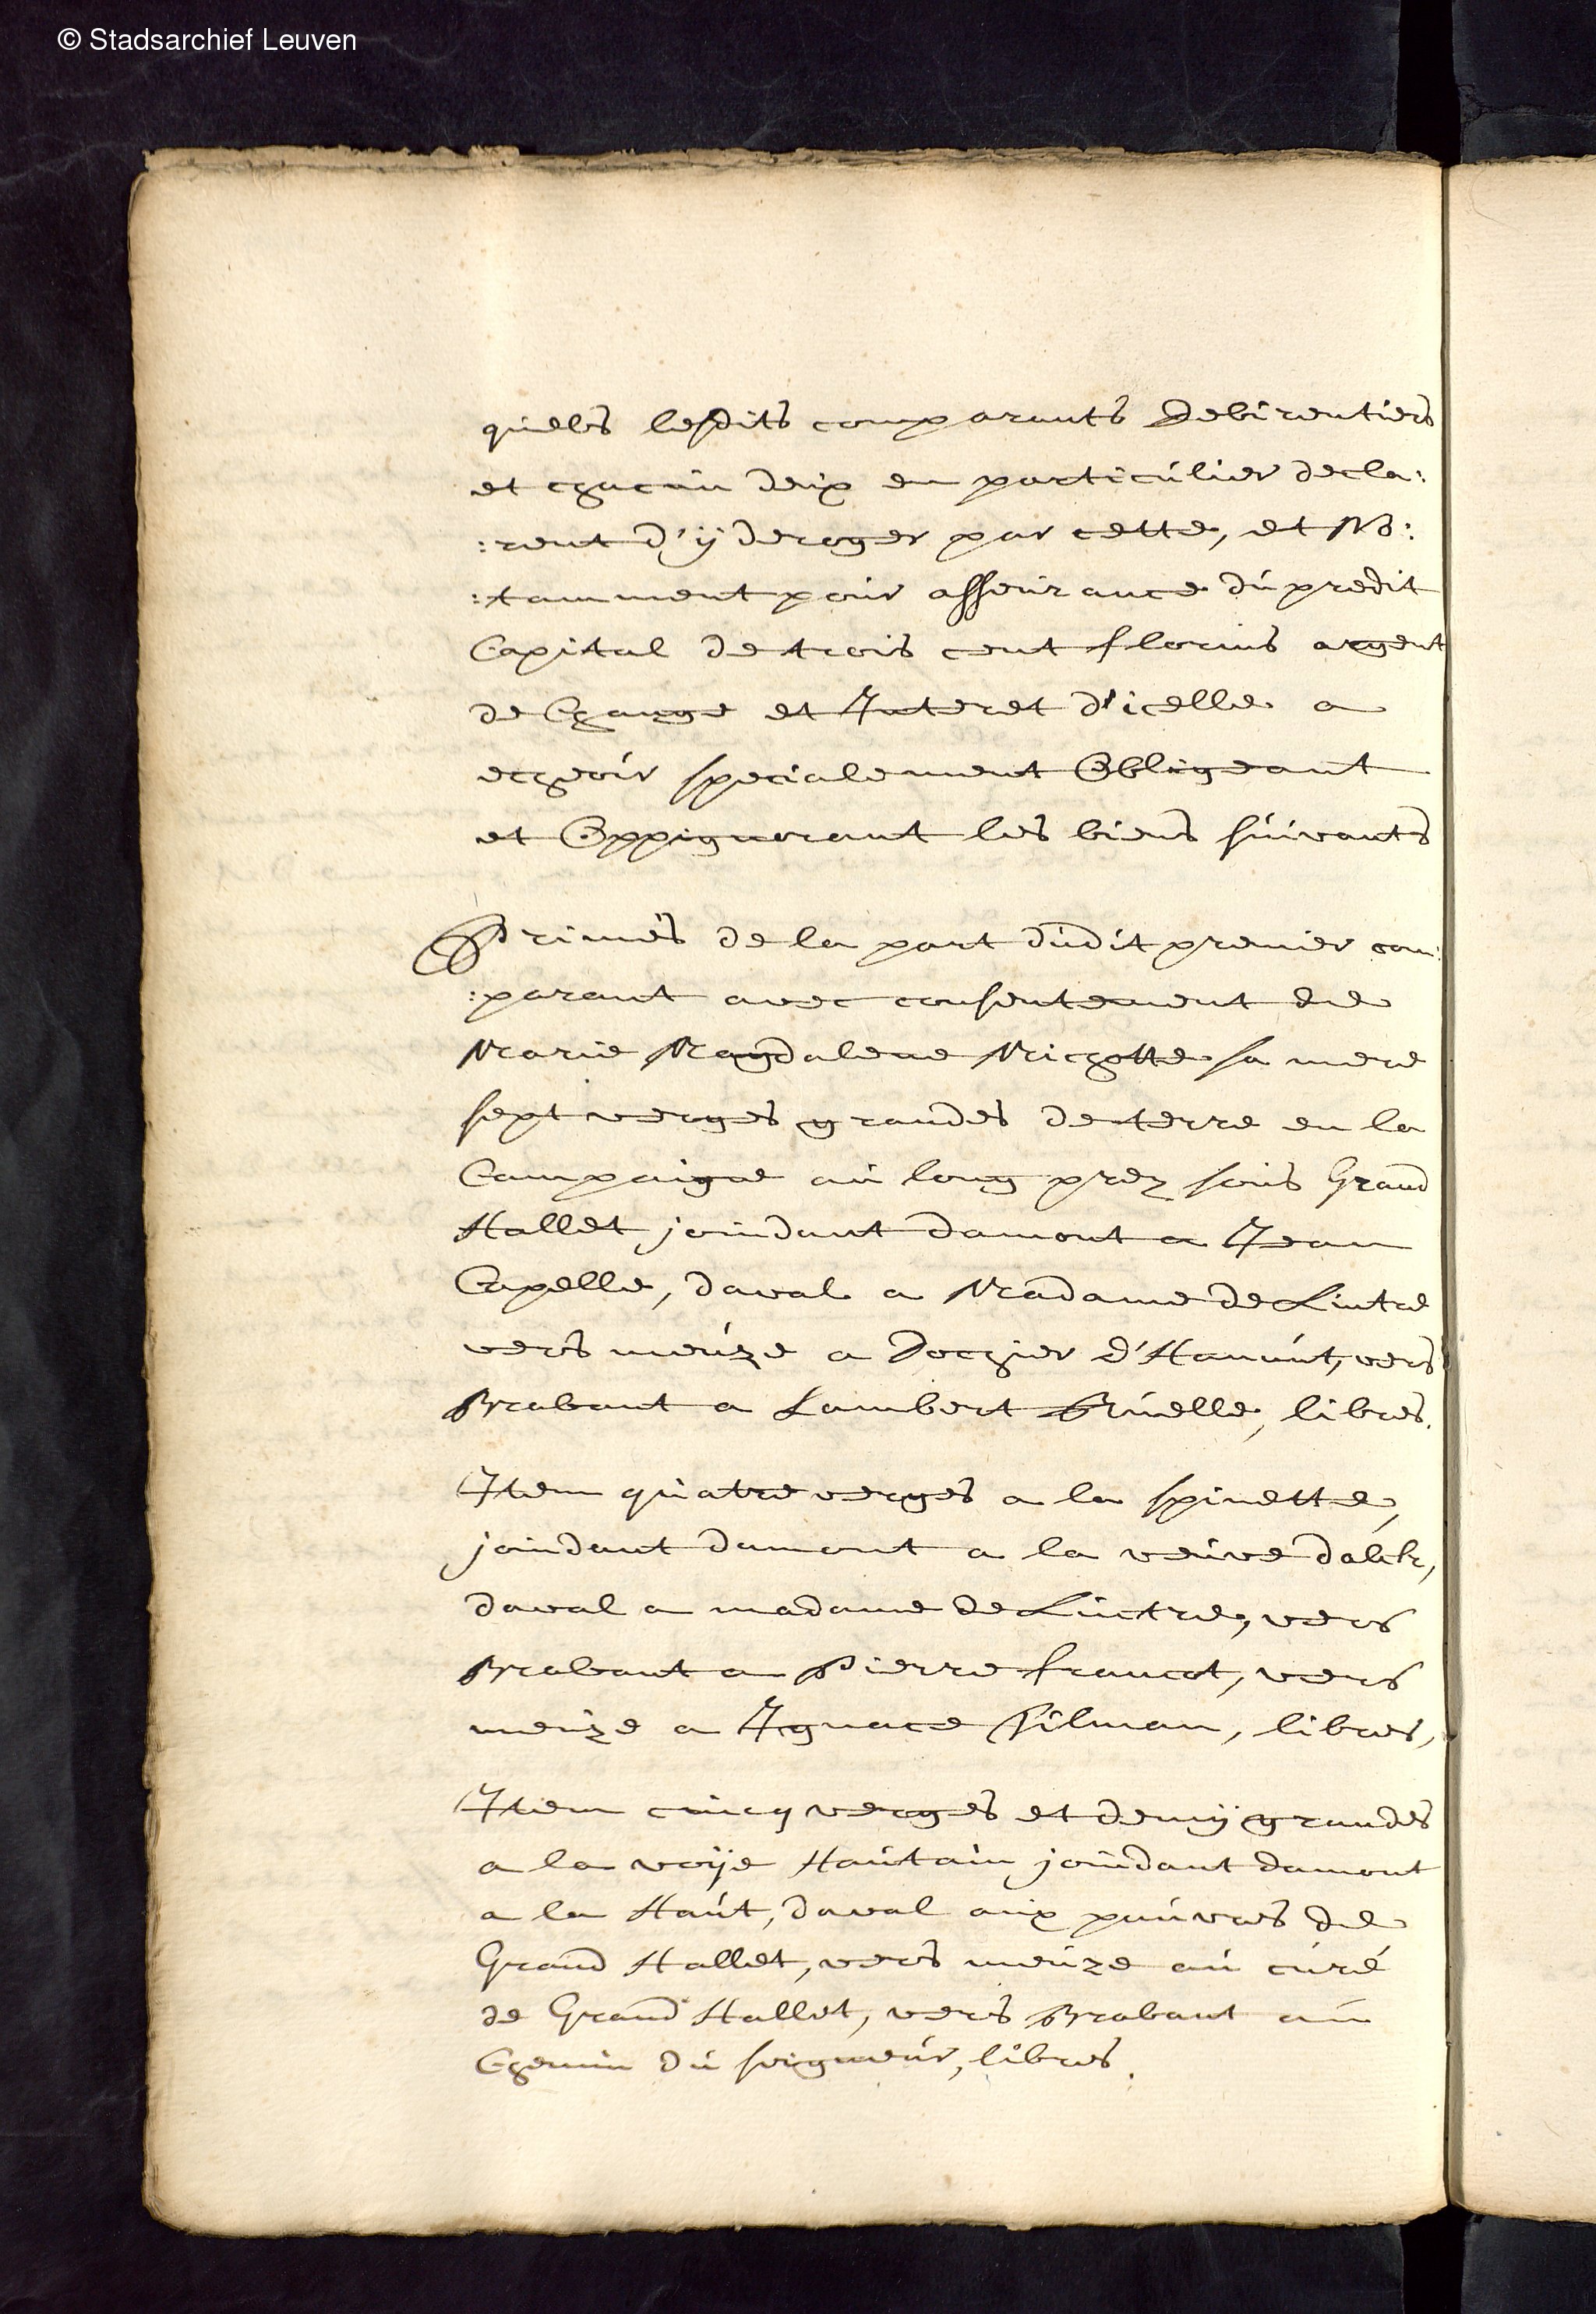 © Stadsarchief Leuven
quelles lesdits comparants Debirentiers
et chacún deúx en particúlier decla:
:rent d'ÿ deroger par cette, et No:
:tamment poúr asseúrance dú predit
Capital de trois cent florins argent
de Change et Interet d'icelle a
echeoir specialement Obligeant
et Oppignorant les biens súivants
Primes de la part dúdit premier com:
:parant avec consentement de
Marie Magdalene Michotte sa mere
sept verges grandes de terre en la
Campaigne aú long prez soús Grand
Hallet joindant damont a Jean
Capelle, daval a Madame de Lintre
vers meúze a Dochier d'Hanút, vers
Brabant a Lambert Brúelle, libres.
Item qúatre verges a la spinette,
joindant damont a la veúve
daval a madame de Lintre, vers
Brabant a Pierre francot, vers
meúze a Ignace Pilman, libres,
Item cincq verges et demÿ grandes
a la voÿe Haútain joindant damont
a la Haút, daval aúx paúvres de
Grand Hallet, vers meúze aú cúré
de Grand Hallet, vers Brabant aú
Chemin dú seigneúr, libres.